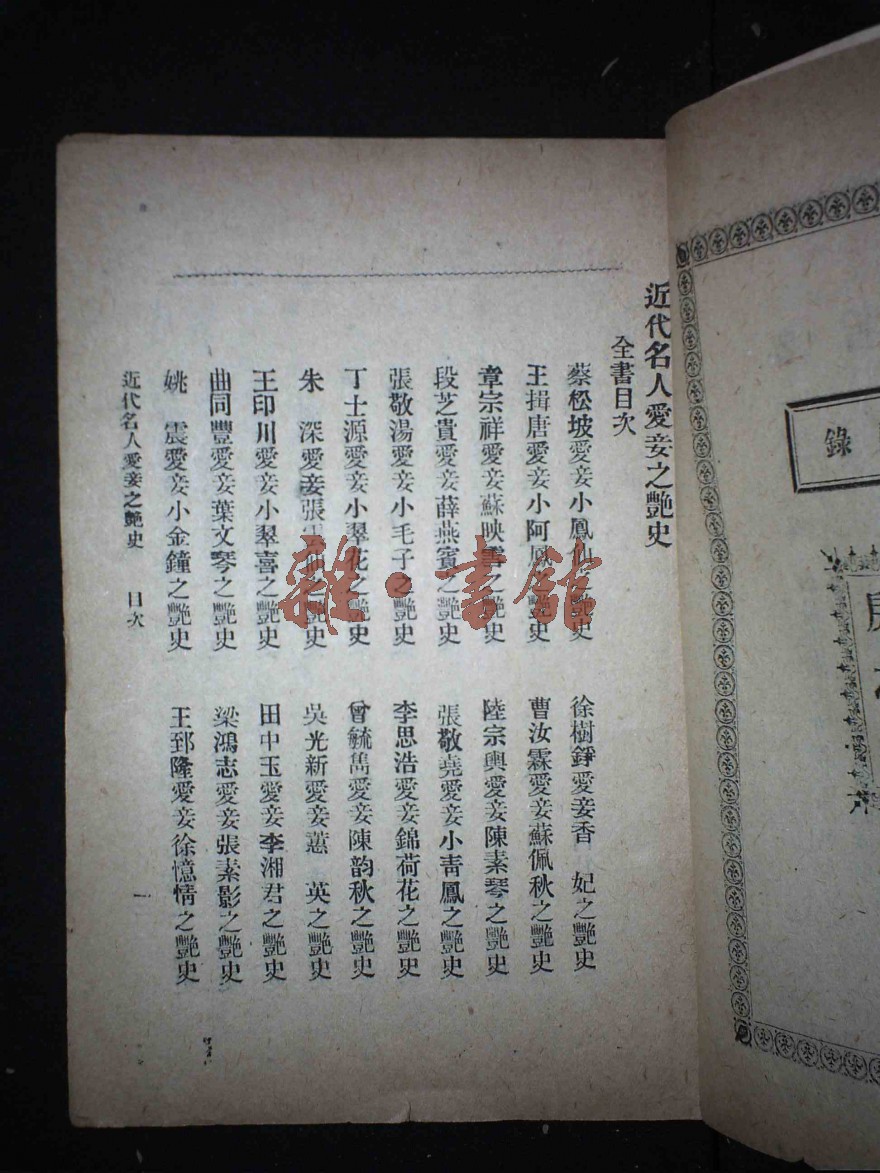 近代名人愛妾之艷史
全書目次
蔡松坡愛妾小鳳仙之艷史
徐樹錚愛妾香 妃之艷史
王揖唐愛妾小阿鳳之艷史
曹汝霖愛妾蘇佩秋之艷史
章宗祥愛妾蘇映雪之艷史
陸宗輿愛妾陳素琴之艷史
段芝貴愛妾薛燕賓之艷史
張敬堯愛妾小靑鳳之艷史
張敬湯愛妾小毛子之艷史
李思浩愛妾錦荷花之艷史
丁士源愛妾小翠花之艷史
曾毓雋愛妾陳韵秋之艷史
朱 深愛妾張雲仙之艷史
吳光新愛妾蕙 英之艷史
王印川愛妾小翠喜之艷史
田中玉愛妾李湘君之艷史
曲同豐愛妾葉文琴之艷史
梁鴻志愛妾張素影之艷史
姚 震愛妾小金鐘之艷史
王郅隆愛妾徐憶情之艷史
近代名人愛妾之艷史 目次
一
雜·書館
錄